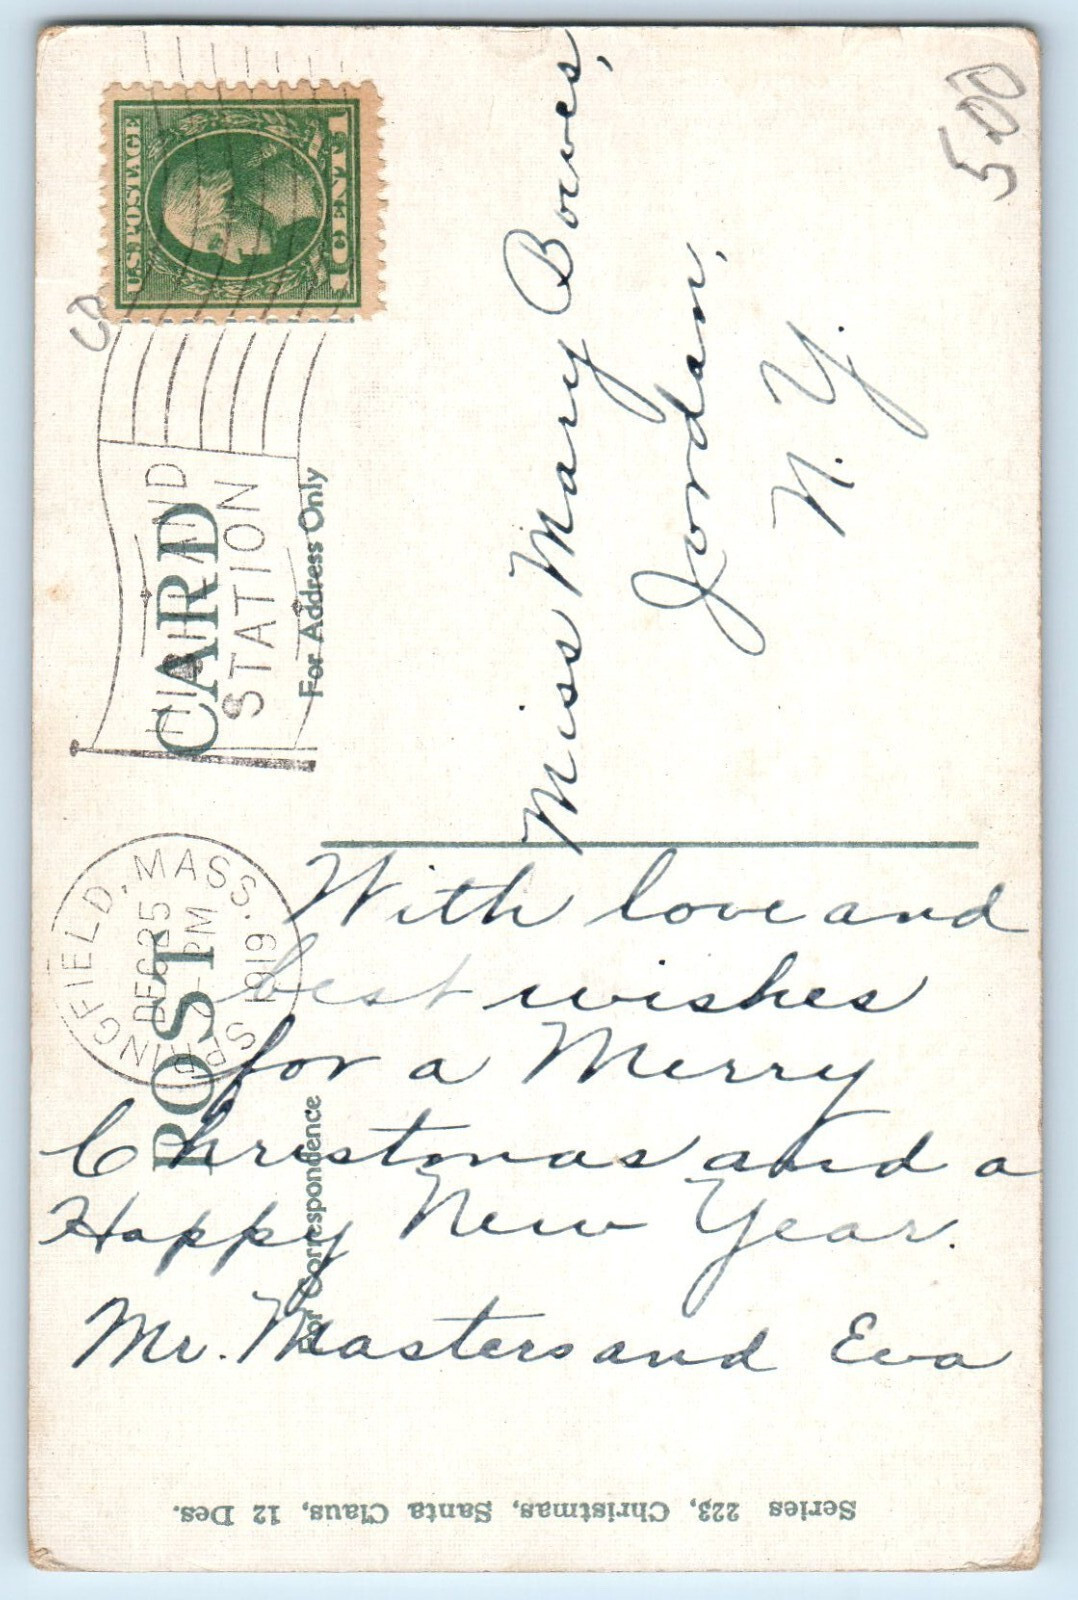 POST CARD
For Correspondence
For Address Only
U.S. POSTAGE
1 CENT 1
SPRINGFIELD, MASS.
DEC 25
PM
1919
HIGHLAND
STATION
5.00
Miss Mary Bowes,
Jordan,
N. Y.
With love and
best wishes
for a Merry
Christmas and a
Happy New Year.
Mr. Masters and Eva
Series 223, Christmas, Santa Claus, 12 Des.